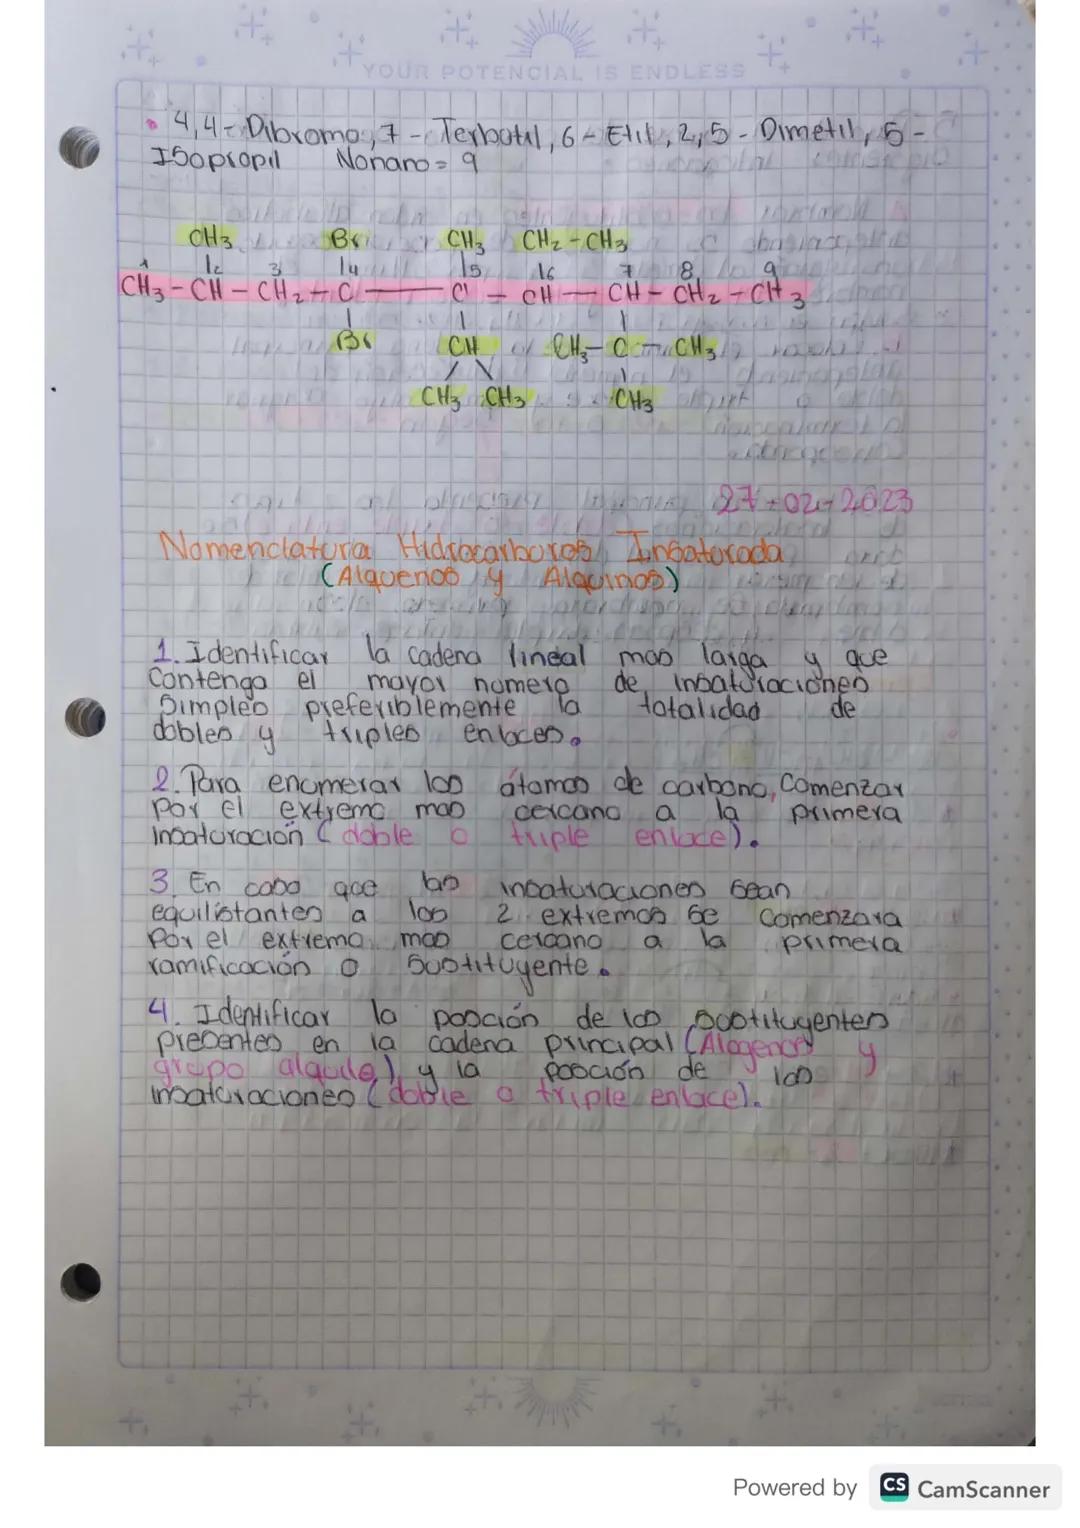 YOUR POTENCIAL IS ENDLESS
• 4,4-Dibromo, 7-Terbutil, 6-Etil, 2,5-Dimetil, 5-
Isopropil Nonano = 9
CH3 Br CH3 CH2-CH3
1 2 3 4 5 6 7 8 9
CH3-CH-CH2-C-C-CH-CH-CH2-CH3
Br CH CH3-C-CH3
CH3 CH3 CH3
27-02-2023
Nomenclatura Hidrocarburos Insaturada
(Alquenos y Alquinos)
1. Identificar la cadena lineal mas larga y que
Contenga el mayor numero de insaturaciones
Simples preferiblemente la totalidad de
dobles y triples enlaces.
2. Para enumerar los átomos de carbono, Comenzar
por el extremo mas cercano a la primera
insaturación (doble o triple enlace).
3. En caso que las insaturaciones sean
equilistantes a los 2 extremos se comenzara
Por el extremo mas cercano a la primera
ramificación o Sustituyente.
4. Identificar la posción de los sustituyentes
presentes en la cadena principal (Alogenos y
grupo alquilo) y la posción de los
insaturaciones (doble o triple enlace).
Powered by CS CamScanner